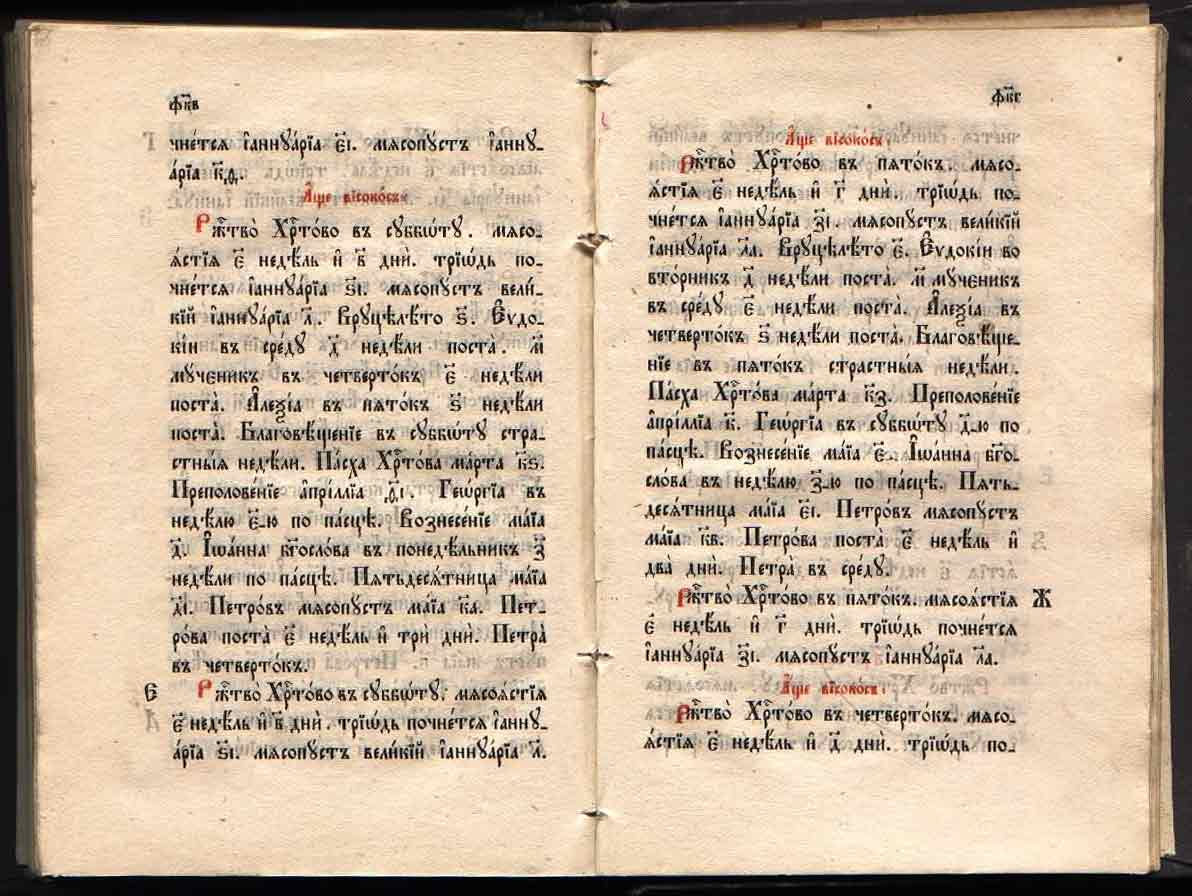 фк҃в
чне́тсѧ і҆аннꙋа́рїа є҃і. мѧсопꙋ́стъ і҆аннꙋ-
а́рїа к҃д.
А҆́ще високо́съ:
Рж҇тво̀ Хрⷭ҇то́во въ сꙋббѡ́тꙋ. мѧсо-
ѧ́стїѧ є҃ недѣ́ль и҆ в҃ днѝ. трїѡ́дь по-
чне́тсѧ і҆аннꙋа́рїа ѕ҃і. мѧсопꙋ́стъ вели́-
кїй і҆аннꙋа́рїа л҃. Врꙋцѣлѣ́то ѕ҃. Є҆ѵдо-
кі́и въ сре́дꙋ д҃ недѣ́ли поста̀. м҃
мч҃еникъ въ четверто́къ є҃ недѣ́ли
поста̀. А҆леѯі́а въ пѧто́къ ѕ҃ недѣ́ли
поста̀. Благовѣ́щенїе въ сꙋббѡ́тꙋ стра-
стны́ѧ недѣ́ли. Па́сха Хрⷭ҇то́ва ма́рта к҃ѕ.
Преполове́нїе а҆прі́ллїа д҃і. Геѡ́ргїа въ
недѣ́лю є҃-ю по па́сцѣ. Вознесе́нїе ма́їа
д҃. І҆ѡа́нна бг҃осло́ва въ понедѣ́льникъ з҃
недѣ́ли по па́сцѣ. Пѧтьдесѧ́тница ма́їа
д҃і. Петро́въ мѧсопꙋ́стъ ма́їа к҃а. Пет-
ро́ва поста̀ є҃ недѣ́ль и҆ трѝ днѝ. Петра̀
въ четверто́къ.
Є Рж҇тво̀ Хрⷭ҇то́во въ сꙋббѡ́тꙋ. мѧсоѧ́стїѧ
є҃ недѣ́ль и҆ в҃ днѝ. трїѡ́дь почне́тсѧ і҆аннꙋ-
а́рїа ѕ҃і. мѧсопꙋ́стъ вели́кїй і҆аннꙋа́рїа л҃.
фк҃г
А҆́ще високо́съ:
Рж҇тво̀ Хрⷭ҇то́во въ пѧто́къ. мѧсо-
ѧ́стїѧ є҃ недѣ́ль и҆ г҃ днѝ. трїѡ́дь по-
чне́тсѧ і҆аннꙋа́рїа з҃і. мѧсопꙋ́стъ вели́кїй
і҆аннꙋа́рїа л҃а. Врꙋцѣлѣ́то є҃. Є҆ѵдокі́и во
вто́рникъ д҃ недѣ́ли поста̀. м҃ мч҃еникъ
въ сре́дꙋ є҃ недѣ́ли поста̀. А҆леѯі́а въ
четверто́къ ѕ҃ недѣ́ли поста̀. Благовѣ́ще-
нїе въ пѧто́къ страстны́ѧ недѣ́ли.
Па́сха Хрⷭ҇то́ва ма́рта к҃з. Преполове́нїе
а҆прі́ллїа к҃. Геѡ́ргїа въ сꙋббѡ́тꙋ д҃-ю по
па́сцѣ. Вознесе́нїе ма́їа є҃. І҆ѡа́нна бг҃о-
сло́ва въ недѣ́лю з҃-ю по па́сцѣ. Пѧть-
десѧ́тница ма́їа є҃і. Петро́въ мѧсопꙋ́стъ
ма́їа к҃в. Петро́ва поста̀ є҃ недѣ́ль и҆
два̀ днѝ. Петра̀ въ сре́дꙋ.
Рж҇тво̀ Хрⷭ҇то́во въ пѧто́къ. мѧсоѧ́стїѧ Ж
є҃ недѣ́ль и҆ г҃ днѝ. трїѡ́дь почне́тсѧ
і҆аннꙋа́рїа з҃і. мѧсопꙋ́стъ і҆аннꙋа́рїа л҃а.
А҆́ще високо́съ:
Рж҇тво̀ Хрⷭ҇то́во въ четверто́къ. мѧсо-
ѧ́стїѧ є҃ недѣ́ль и҆ д҃ днѝ. трїѡ́дь по-